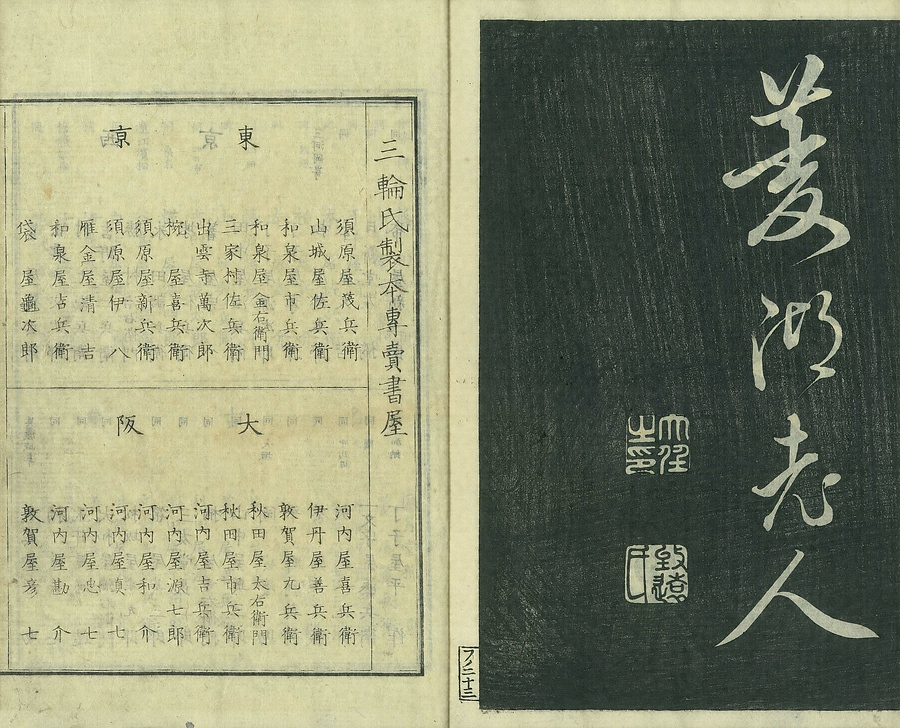 菱湖老人
大任之印
致遠氏
フノ二十三
三輪氏製本專賣書屋
東京
須原屋茂兵衛
山城屋佐兵衛
和泉屋市兵衛
和泉屋金右衛門
三家村佐兵衛
出雲寺萬次郎
椀屋喜兵衛
須原屋新兵衛
須原屋伊八
雁金屋清吉
和泉屋吉兵衛
袋屋龜次郎
大阪
河内屋喜兵衛
伊丹屋善兵衛
敦賀屋九兵衛
秋田屋太右衛門
秋田屋市兵衛
河内屋吉兵衛
河内屋源七郎
河内屋和介
河内屋眞七
河内屋忠七
河内屋勘介
敦賀屋彦七